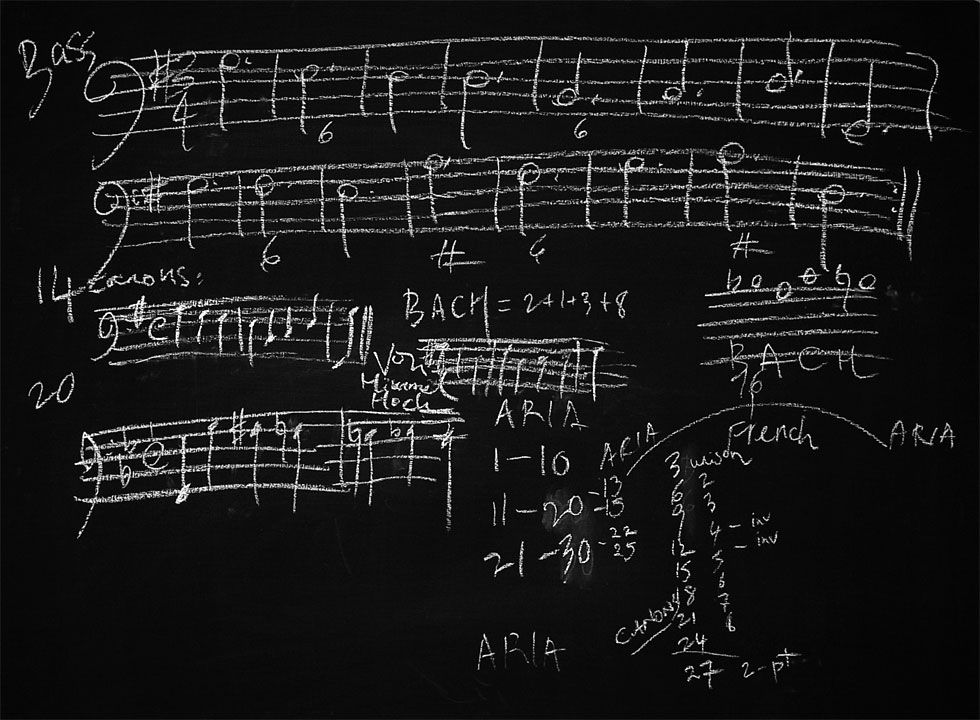 Bass
3
4
6
6
6
#
6
#
14 canons:
BACH = 2+1+3+8
BACH
20
Von
Himmel
Hoch
ARIA
1-10
11-20 -13
-15
21-30 -22
25
ARIA
16
ARIA
French
ARIA
3 unison
6 2
9 3
4 - inv
12 5 - inv
15 6
18 7
21 8
24
27 2-pt
CANONS